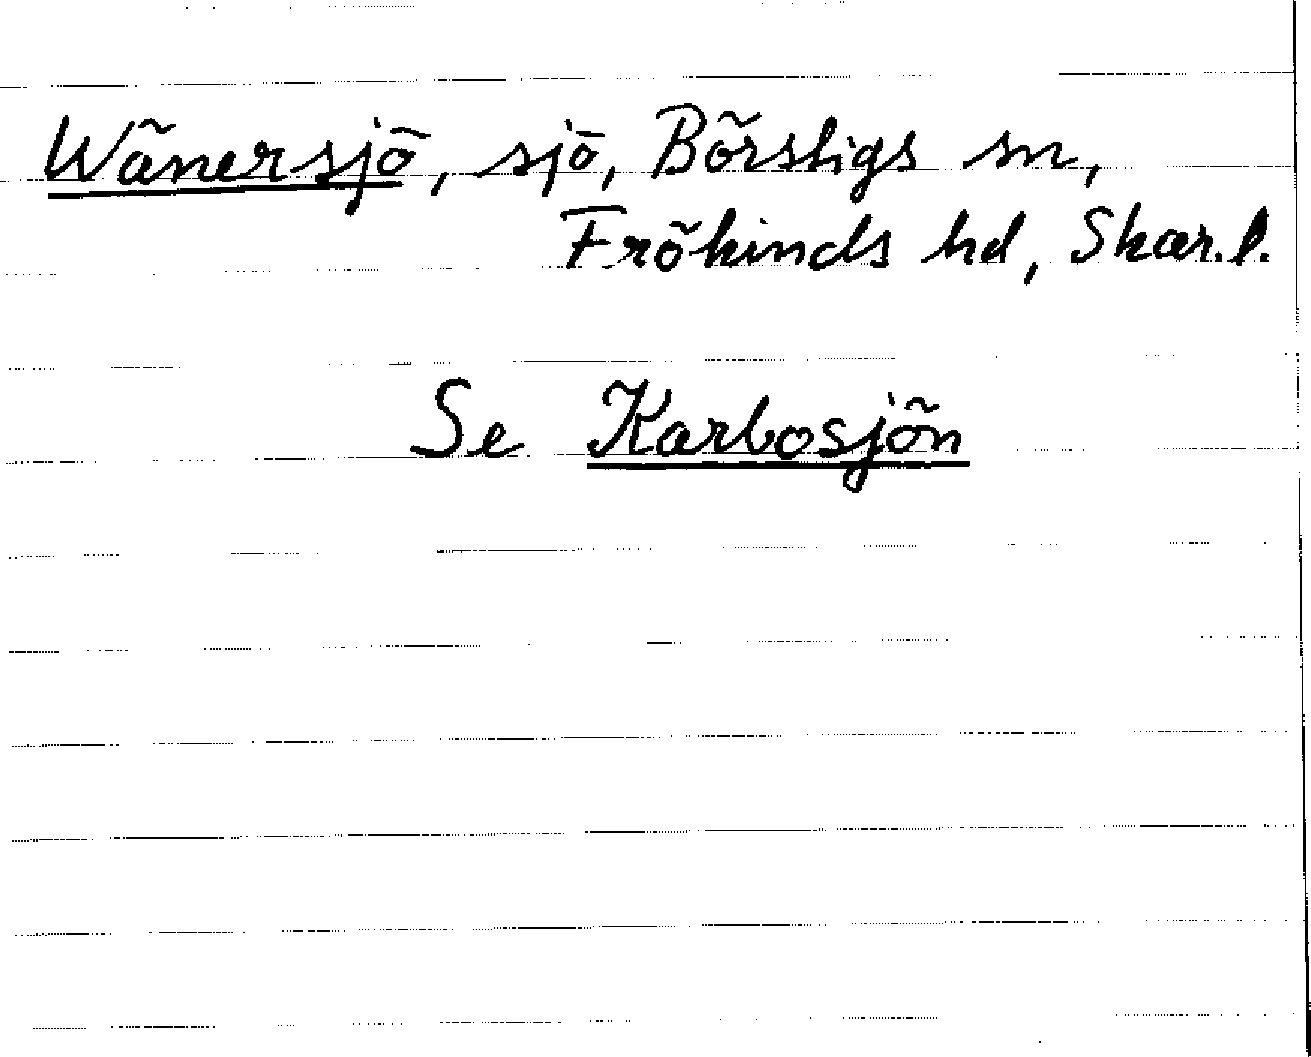 Wänersjö, sjö, Börstigs sn,
Frökinds hd, Skar.l.
Se Karbosjön